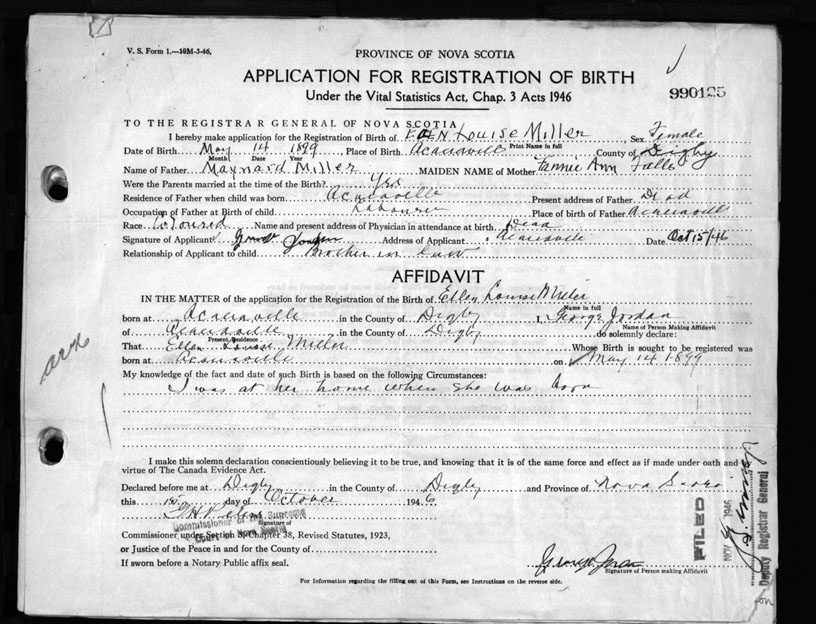 V. S. Form 1.—10M-3-46.
PROVINCE OF NOVA SCOTIA
APPLICATION FOR REGISTRATION OF BIRTH
Under the Vital Statistics Act, Chap. 3 Acts 1946
990125
TO THE REGISTRAR GENERAL OF NOVA SCOTIA
I hereby make application for the Registration of Birth of Louise Miller Sex Female
Print Name in full
Date of Birth May 14 1899 Place of Birth Acaciaville County of Digby
Month Date Year
Name of Father Maynard Miller MAIDEN NAME of Mother Fannie Ann
Were the Parents married at the time of the Birth? Yes
Residence of Father when child was born Acaciaville Present address of Father Dead
Occupation of Father at Birth of child Labourer Place of birth of Father Acaciaville
Race Name and present address of Physician in attendance at birth Dead
Signature of Applicant Address of Applicant Acaciaville Date Oct 15/46
Relationship of Applicant to child Brother in law
AFFIDAVIT
IN THE MATTER of the application for the Registration of the Birth of Ellen Louise Miller
Name in full
born at Acaciaville in the County of Digby I, George Jordan
Name of Person Making Affidavit
of Acaciaville in the County of Digby do solemnly declare:
Present Residence
That Ellen Louise Miller Whose Birth is sought to be registered was
born at Acaciaville on May 14 1899
My knowledge of the fact and date of such Birth is based on the following Circumstances:
I was at her home when she was born
I make this solemn declaration conscientiously believing it to be true, and knowing that it is of the same force and effect as if made under oath and by
virtue of The Canada Evidence Act.
Declared before me at Digby in the County of Digby and Province of Nova Scotia
this 15 day of October 1946
Commissioner of the Supreme
Court of Nova Scotia
Signature of
Commissioner under Section 3, Chapter 38, Revised Statutes, 1923,
or Justice of the Peace in and for the County of
If sworn before a Notary Public affix seal.
George Jordan
Signature of Person making Affidavit
For Information regarding the filling out of this Form, see Instructions on the reverse side.
FILED
NOV 1946
Deputy Registrar General